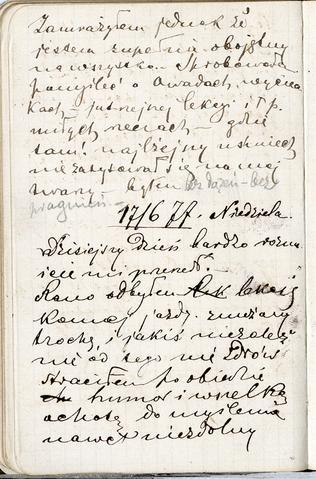 Zauważyłem jednak że
jestem zupełnie obojętny
na wszystko. Spróbowałem
pomyśleć o Owadach, wyciecz
kach – jutrzejszej lekcyi i t p.
miłych rzeczach – gdzie
tam! najlżejszy uśmiech
nie zarysował się na mej
twarzy. – byłem bez dążeń – bez
pragnień. –
17/6 77. Niedziela.
Dzisiejszy dzień bardzo rozma
icie mi przeszedł.
Rano odbyłem lekcję
konnej jazdy. zmęczony
trochę, i jakiś niezależ
nie od tego nie zdrów
straciłem po obiedzie
humor i wszelką
ochotę do myślenia
nawet niezdolny